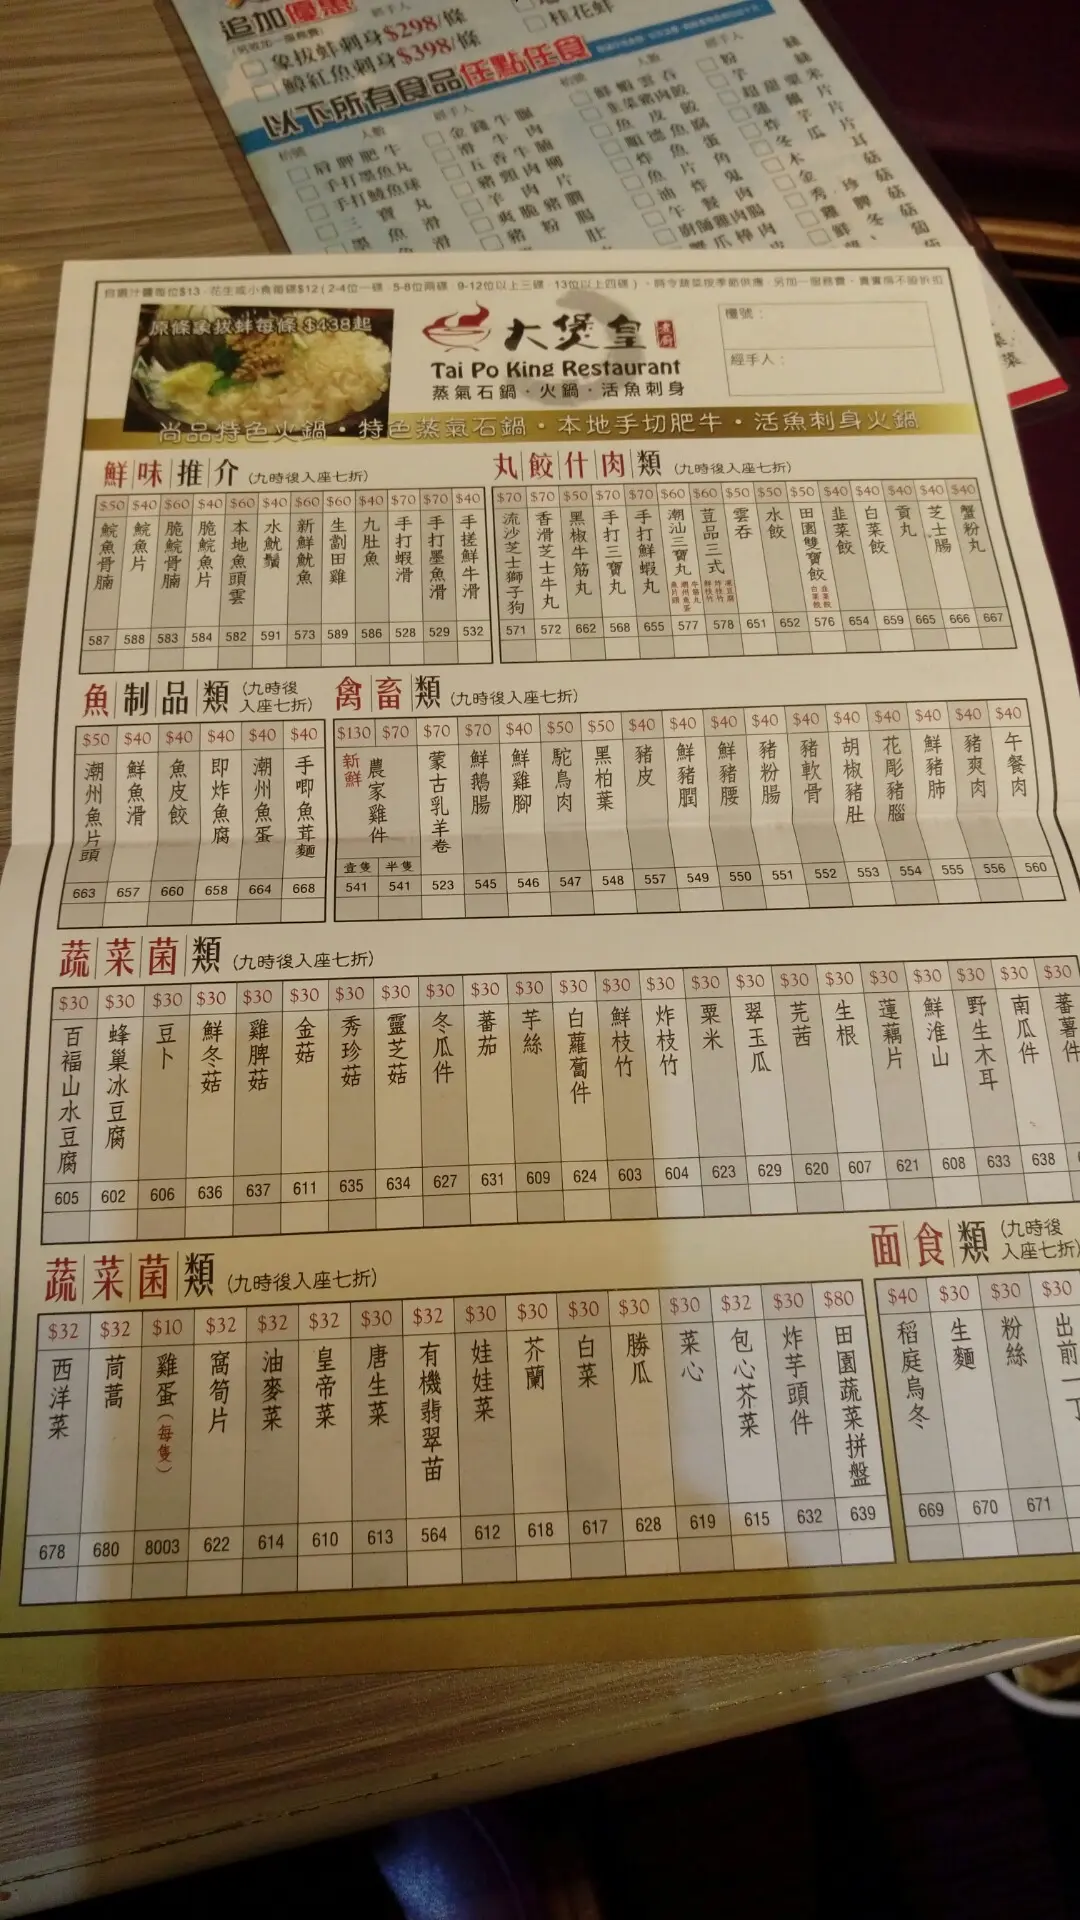 追加優惠
象拔蚌刺身$298/條
鱘紅魚刺身$398/條
桂花蚌
以下所有食品任點任食
枱號 人數 經手人
肩胛肥牛
手打墨魚丸
手打鯪魚球
三寶丸
墨魚滑
金錢牛𦟌
滑牛肉
五香牛腩
豬頸肉柳
羊肉片
爽脆豬膶
豬粉腸
枱號 人數 經手人
鮮蝦雲吞
韭菜豬肉餃
魚皮餃
順德魚腐
炸魚蛋
魚片角
油炸鬼
午餐肉
廚師雞肉腸
自選汁醬每位$13 · 花生或小食每碟$12 ( 2-4位一碟 5-8位兩碟 9-12位以上三碟 13位以上四碟 )、時令蔬菜按季節供應 另加一服務費、貴賓房不設折扣
原條象拔蚌每條 $438起
大煲皇
Tai Po King Restaurant
蒸氣石鍋·火鍋·活魚刺身
檯號：
經手人：
尚品特色火鍋·特色蒸氣石鍋·本地手切肥牛·活魚刺身火鍋
鮮味推介 (九時後入座七折)
$50 鯇魚骨腩 587
$40 鯇魚片 588
$60 脆鯇骨腩 583
$40 脆鯇魚片 584
$60 本地魚頭雲 582
$40 水魷鬚 591
$60 新鮮魷魚 573
$60 生劏田雞 589
$40 九肚魚 586
$70 手打蝦滑 528
$70 手打墨魚滑 529
$40 手搓鮮牛滑 532
丸餃什肉類 (九時後入座七折)
$70 流沙芝士獅子狗 571
$70 香滑芝士牛丸 572
$50 黑椒牛筋丸 662
$70 手打三寶丸 568
$70 手打鮮蝦丸 655
$60 潮汕三寶丸 577
$60 荳品三式 578
$50 雲吞 651
$50 水餃 652
$50 田園雙寶餃 576
$40 韭菜餃 654
$40 白菜餃 659
$40 貢丸 665
$40 芝士腸 666
$40 蟹粉丸 667
魚制品類 (九時後入座七折)
$50 潮州魚片頭 663
$40 鮮魚滑 657
$40 魚皮餃 660
$40 即炸魚腐 658
$40 潮州魚蛋 664
$40 手唧魚茸麵 668
禽畜類 (九時後入座七折)
$130 $70 新鮮 農家雞件 壹隻 半隻 541 541
$70 蒙古乳羊卷 523
$70 鮮鵝腸 545
$40 鮮雞腳 546
$50 駝鳥肉 547
$50 黑柏葉 548
$40 豬皮 557
$40 鮮豬膶 549
$40 鮮豬腰 550
$40 豬粉腸 551
$40 豬軟骨 552
$40 胡椒豬肚 553
$40 花彫豬腦 554
$40 鮮豬肺 555
$40 豬爽肉 556
$40 午餐肉 560
蔬菜菌類 (九時後入座七折)
$30 百福山水豆腐 605
$30 蜂巢冰豆腐 602
$30 豆卜 606
$30 鮮冬菇 636
$30 雞脾菇 637
$30 金菇 611
$30 秀珍菇 635
$30 靈芝菇 634
$30 冬瓜件 627
$30 蕃茄 631
$30 芋絲 609
$30 白蘿蔔件 624
$30 鮮枝竹 603
$30 炸枝竹 604
$30 粟米 623
$30 翠玉瓜 629
$30 芫茜 620
$30 生根 607
$30 蓮藕片 621
$30 鮮淮山 608
$30 野生木耳 633
$30 南瓜件 638
$30 蕃薯件
蔬菜菌類 (九時後入座七折)
$32 西洋菜 678
$32 茼蒿 680
$10 雞蛋(每隻) 8003
$32 窩筍片 622
$32 油麥菜 614
$32 皇帝菜 610
$30 唐生菜 613
$32 有機翡翠苗 564
$30 娃娃菜 612
$30 芥蘭 618
$30 白菜 617
$30 勝瓜 628
$30 菜心 619
$32 包心芥菜 615
$30 炸芋頭件 632
$80 田園蔬菜拼盤 639
面食類 (九時後入座七折)
$40 稻庭烏冬 669
$30 生麵 670
$30 粉絲 671
$30 出前一丁